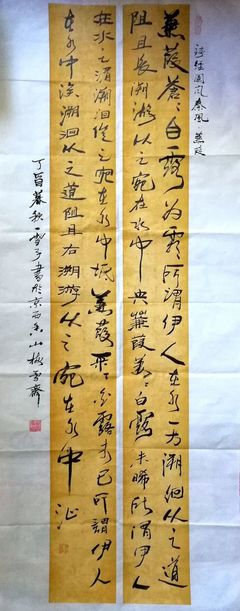 詩經國風秦風蒹葭
蒹葭蒼〻白露为霜所謂伊人在水一方溯洄从之道
阻且長溯游从之宛在水中央蒹葭萋〻白露未晞所謂伊人
在水之湄溯洄從之宛在水中坻蒹葭采〻白露未已所謂伊人
在水中涘溯洄从之道阻且右溯游从之宛在水中沚
丁酉暮秋一子書於京西香山雪齋